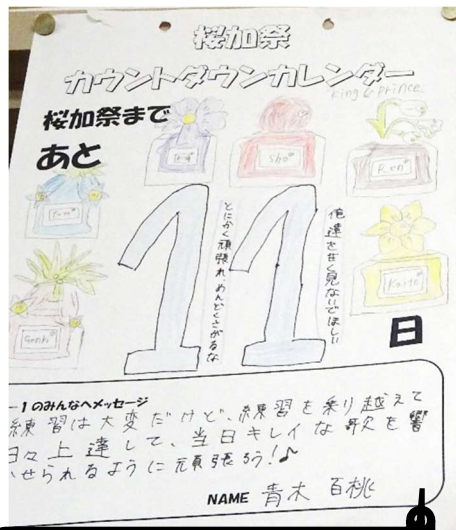 桜加祭
カウントダウンカレンダー
King & Prince
桜加祭まで
あと
sho
Ren
Kaito
Genki
11
とにかく頑張れ、めんどくさがるな
俺達を甘く見ないでほしい
日
-1のみんなへメッセージ
練習は大変だけど、練習を乗り越えて
日々上達して、当日キレイな歌を響
かせられるように頑張ろう！♪
NAME 青木 百桃